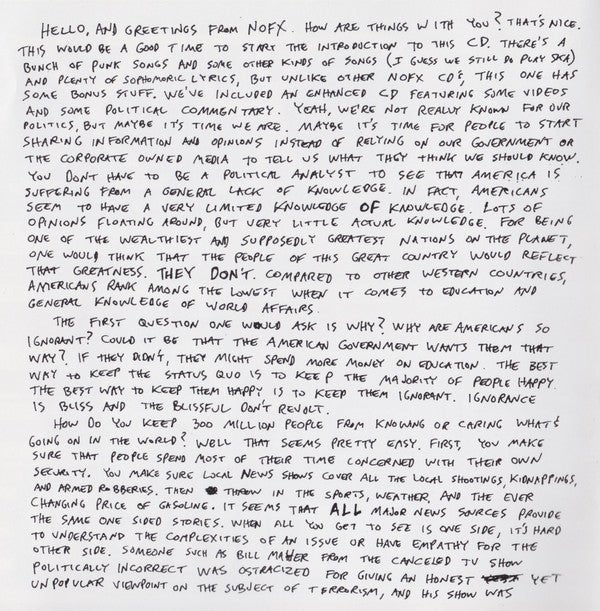 HELLO, AND GREETINGS FROM NOFX. HOW ARE THINGS WITH YOU? THAT'S NICE.
THIS WOULD BE A GOOD TIME TO START THE INTRODUCTION TO THIS CD. THERE'S A
BUNCH OF PUNK SONGS AND SOME OTHER KINDS OF SONGS (I GUESS WE STILL DO PLAY SKA)
AND PLENTY OF SOPHOMORIC LYRICS, BUT UNLIKE OTHER NOFX CD'S, THIS ONE HAS
SOME BONUS STUFF. WE'VE INCLUDED AN ENHANCED CD FEATURING SOME VIDEOS
AND SOME POLITICAL COMMENTARY. YEAH, WE'RE NOT REALLY KNOWN FOR OUR
POLITICS, BUT MAYBE IT'S TIME WE ARE. MAYBE IT'S TIME FOR PEOPLE TO START
SHARING INFORMATION AND OPINIONS INSTEAD OF RELYING ON OUR GOVERNMENT OR
THE CORPORATE OWNED MEDIA TO TELL US WHAT THEY THINK WE SHOULD KNOW.
YOU DON'T HAVE TO BE A POLITICAL ANALYST TO SEE THAT AMERICA IS
SUFFERING FROM A GENERAL LACK OF KNOWLEDGE. IN FACT, AMERICANS
SEEM TO HAVE A VERY LIMITED KNOWLEDGE OF KNOWLEDGE. LOTS OF
OPINIONS FLOATING AROUND, BUT VERY LITTLE ACTUAL KNOWLEDGE. FOR BEING
ONE OF THE WEALTHIEST AND SUPPOSEDLY GREATEST NATIONS ON THE PLANET,
ONE WOULD THINK THAT THE PEOPLE OF THIS GREAT COUNTRY WOULD REFLECT
THAT GREATNESS. THEY DON'T. COMPARED TO OTHER WESTERN COUNTRIES,
AMERICANS RANK AMONG THE LOWEST WHEN IT COMES TO EDUCATION AND
GENERAL KNOWLEDGE OF WORLD AFFAIRS.
THE FIRST QUESTION ONE WOULD ASK IS WHY? WHY ARE AMERICANS SO
IGNORANT? COULD IT BE THAT THE AMERICAN GOVERNMENT WANTS THEM THAT
WAY? IF THEY DIDN'T, THEY MIGHT SPEND MORE MONEY ON EDUCATION. THE BEST
WAY TO KEEP THE STATUS QUO IS TO KEEP THE MAJORITY OF PEOPLE HAPPY.
THE BEST WAY TO KEEP THEM HAPPY IS TO KEEP THEM IGNORANT. IGNORANCE
IS BLISS AND THE BLISSFUL DON'T REVOLT.
HOW DO YOU KEEP 300 MILLION PEOPLE FROM KNOWING OR CARING WHAT'S
GOING ON IN THE WORLD? WELL THAT SEEMS PRETTY EASY. FIRST, YOU MAKE
SURE THAT PEOPLE SPEND MOST OF THEIR TIME CONCERNED WITH THEIR OWN
SECURITY. YOU MAKE SURE LOCAL NEWS SHOWS COVER ALL THE LOCAL SHOOTINGS, KIDNAPPINGS,
AND ARMED ROBBERIES. THEN THROW IN THE SPORTS, WEATHER, AND THE EVER
CHANGING PRICE OF GASOLINE. IT SEEMS THAT ALL MAJOR NEWS SOURCES PROVIDE
THE SAME ONE SIDED STORIES. WHEN ALL YOU GET TO SEE IS ONE SIDE, IT'S HARD
TO UNDERSTAND THE COMPLEXITIES OF AN ISSUE OR HAVE EMPATHY FOR THE
OTHER SIDE. SOMEONE SUCH AS BILL MAHER FROM THE CANCELED TV SHOW
POLITICALLY INCORRECT WAS OSTRACIZED FOR GIVING AN HONEST YET
UNPOPULAR VIEWPOINT ON THE SUBJECT OF TERRORISM, AND HIS SHOW WAS